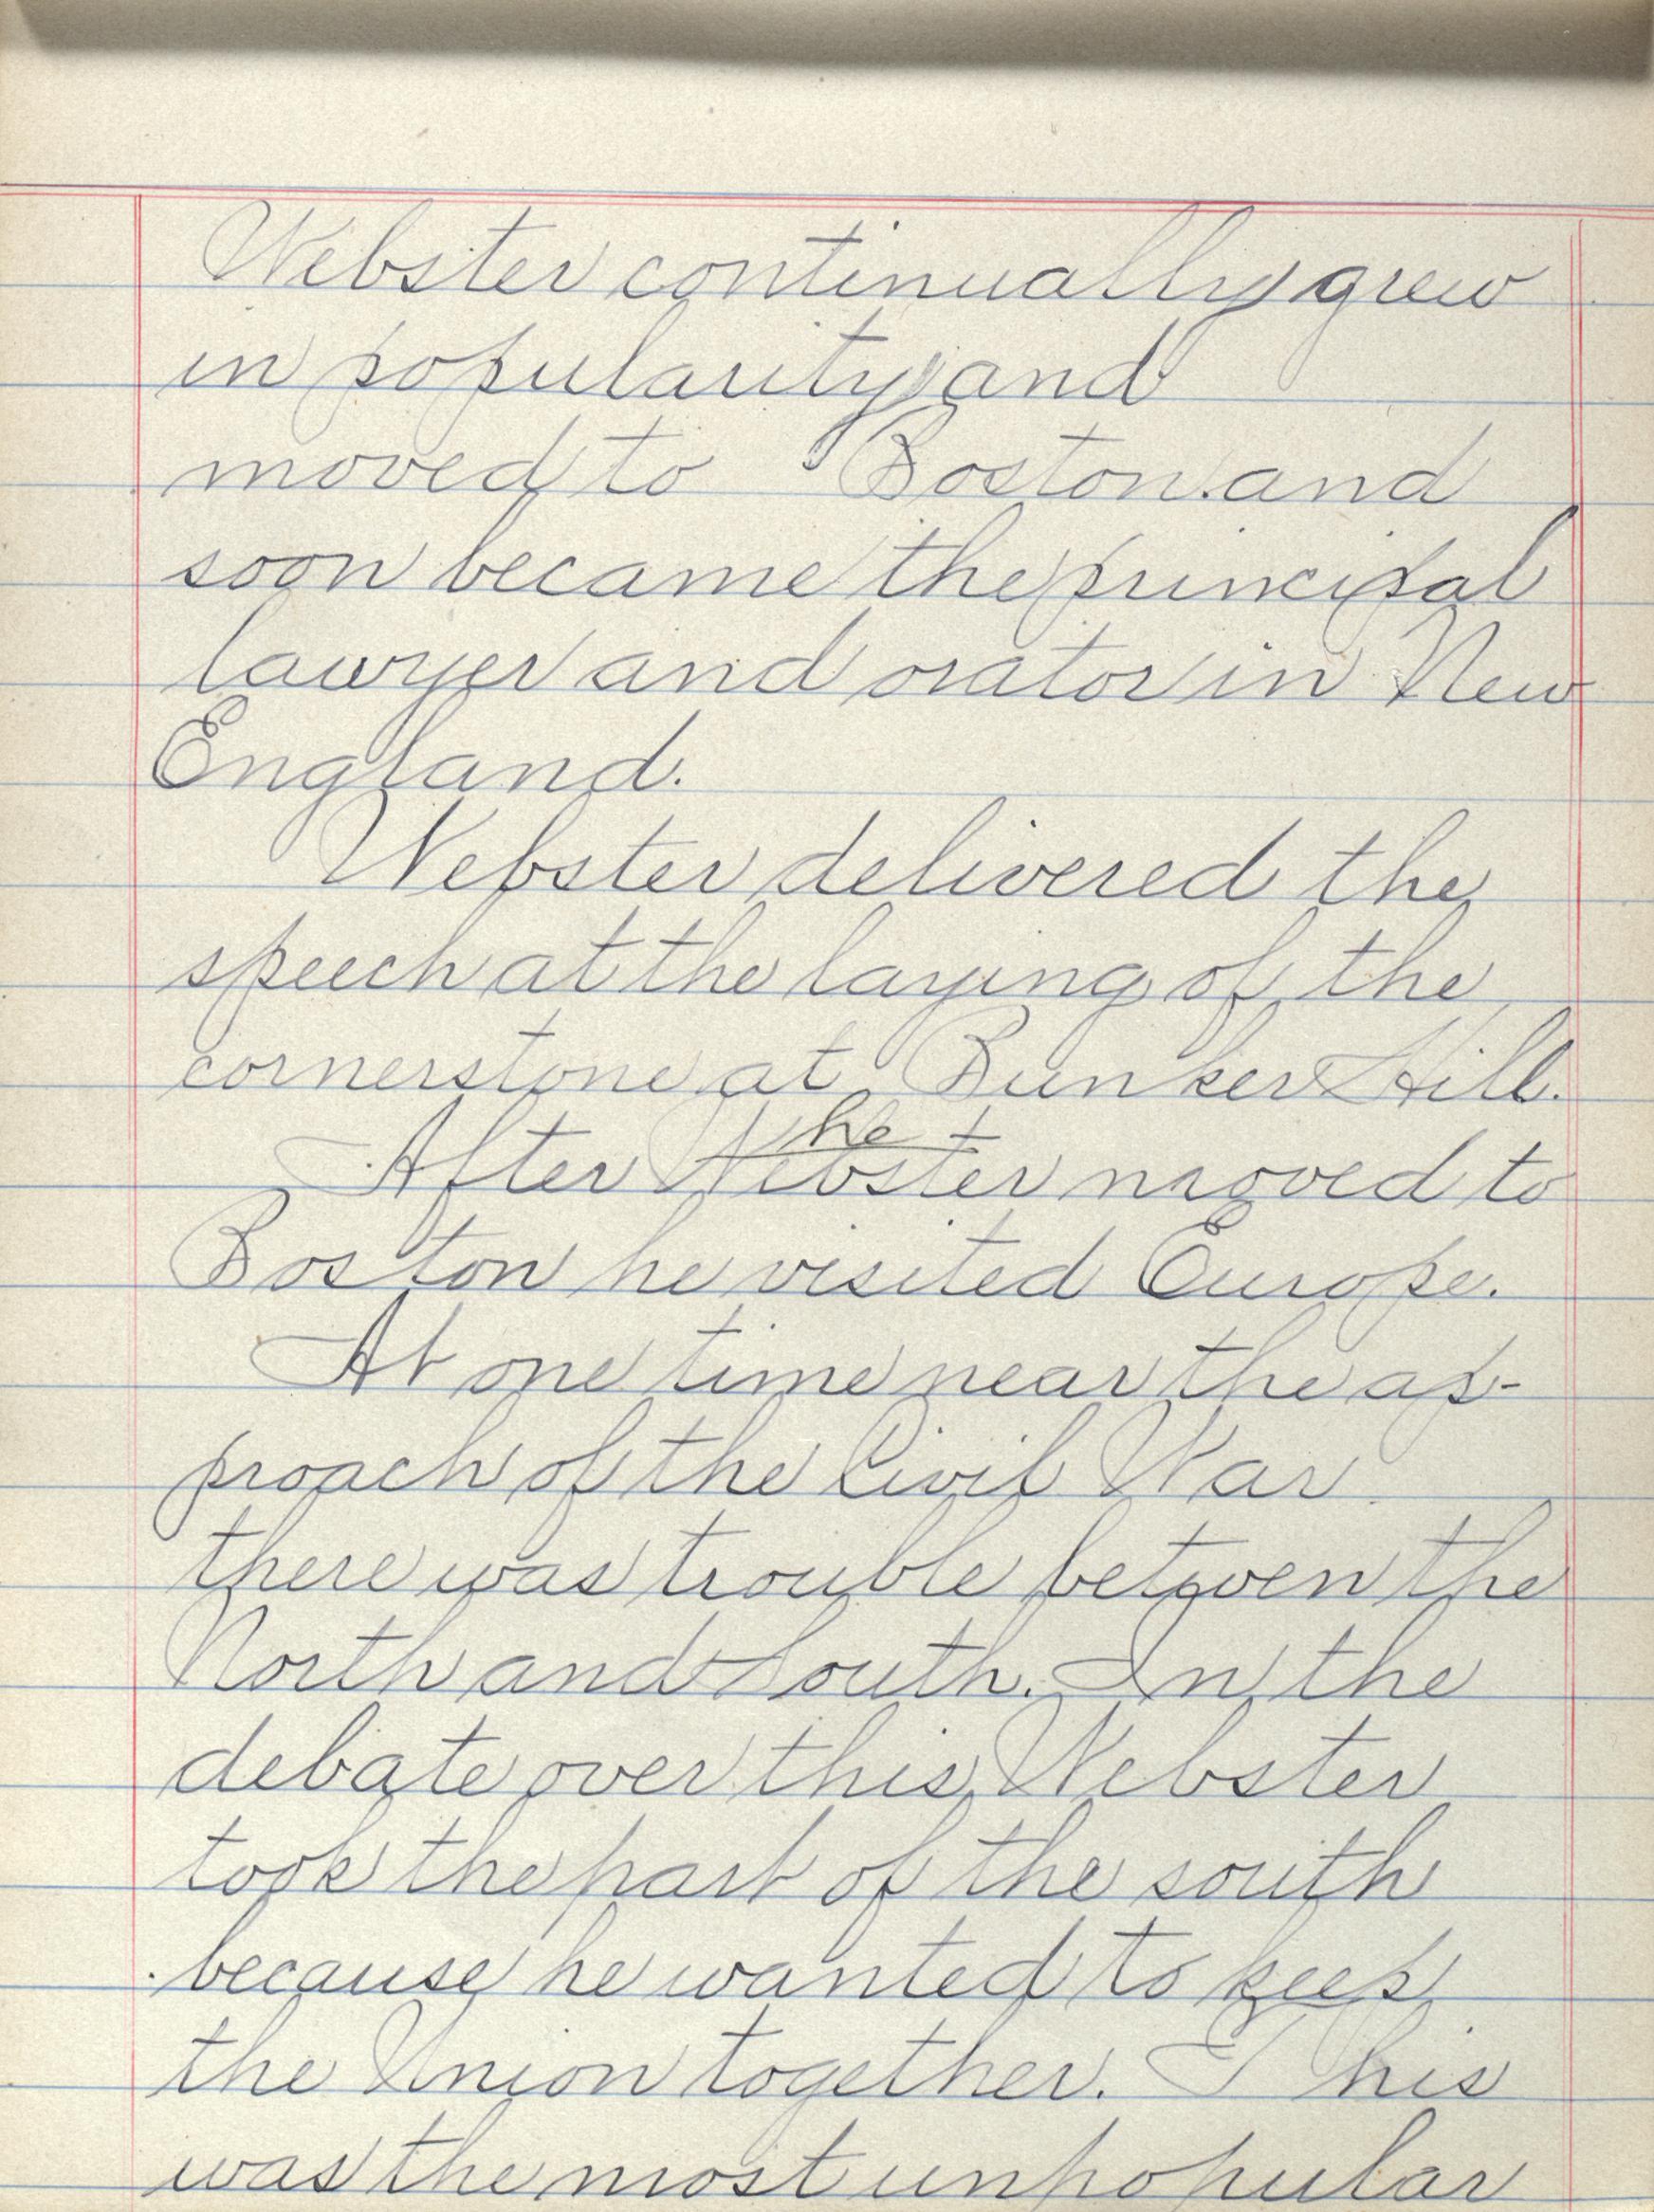 Webster continually grew
in popularity and
moved to Boston and
soon became the principal
lawyer and orator in New
England.
Webster delivered the
speech at the laying of the
cornerstone at Bunker Hill.
he
After Webster moved to
Boston he visited Europe.
At one time near the ap-
proach of the Civil War
there was trouble betwen the
North and South. In the
debate over this Webster
took the part of the south
because he wanted to keep
the Union together. This
was the most unpopular